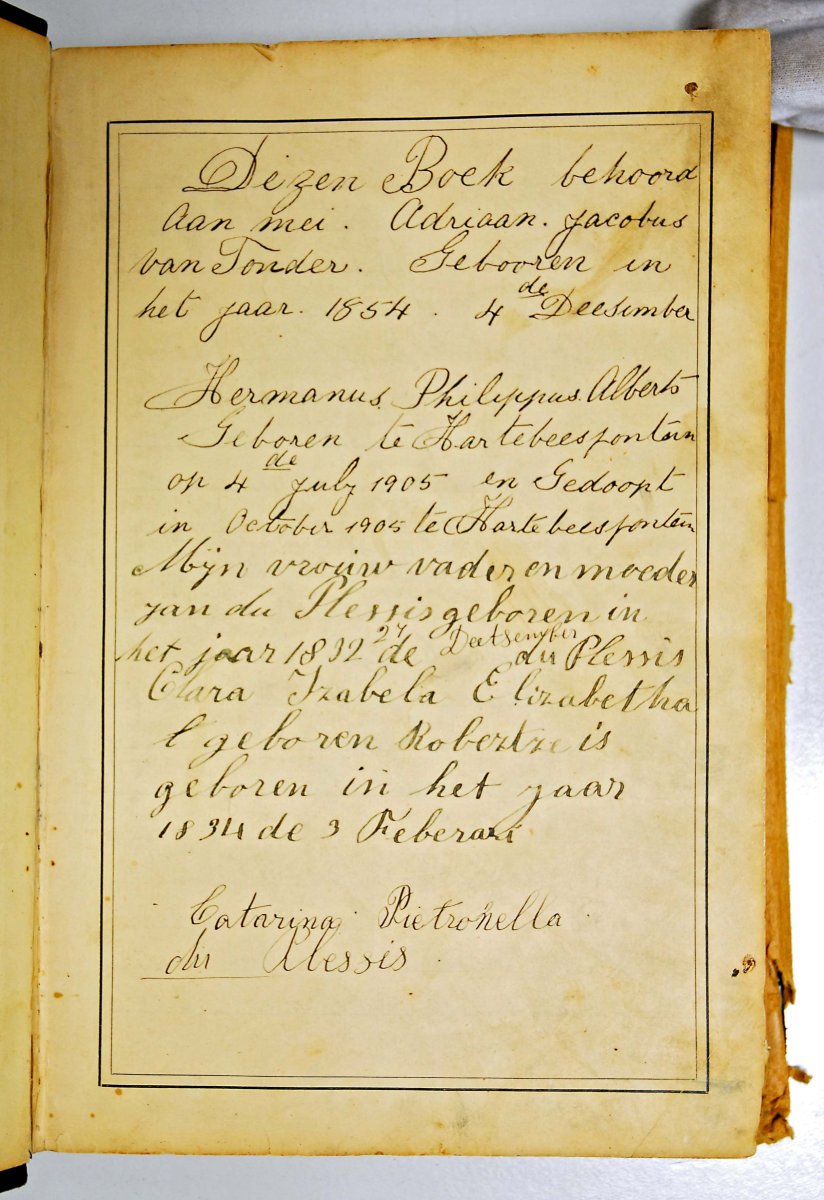 Dezen Boek behoord
Aan mei. Adriaan. Jacobus
van Tonder. Gebooren in
het jaar. 1854. 4de Deesimber
Hermanus Philippus. Alberts
Geboren te Hartebeesfontein
op 4de July 1905 en Gedoopt
in October 1905 te Hartebeesfontein
Mijn vrouw vader en moeder
jan du Plessis geboren in
het jaar 1832 27 de Deetsember du Plessis
Clara Izabela Elizabetha
geboren Robertze is
geboren in het jaar
1834 de 3 Feberari
Catarina Pietronella
du Plessis